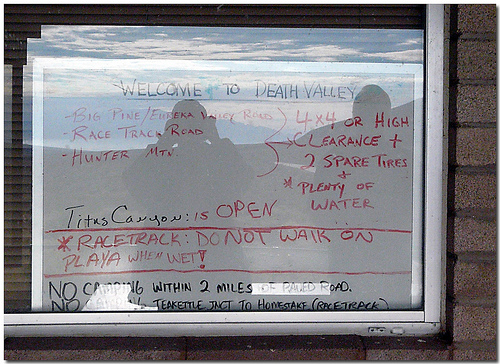 WELCOME TO DEATH VALLEY
- BIG PINE/EUREKA VALLEY ROAD
- RACE TRACK ROAD
- HUNTER MTN.
4x4 OR HIGH
CLEARANCE +
2 SPARE TIRES
+
* PLENTY OF
WATER
Titus Canyon: IS OPEN
* RACETRACK: DO NOT WALK ON
PLAYA WHEN WET!
NO CAMPING WITHIN 2 MILES OF PAVED ROAD.
NO CAMPING TEAKETTLE JNCT TO HOMESTAKE (RACETRACK)